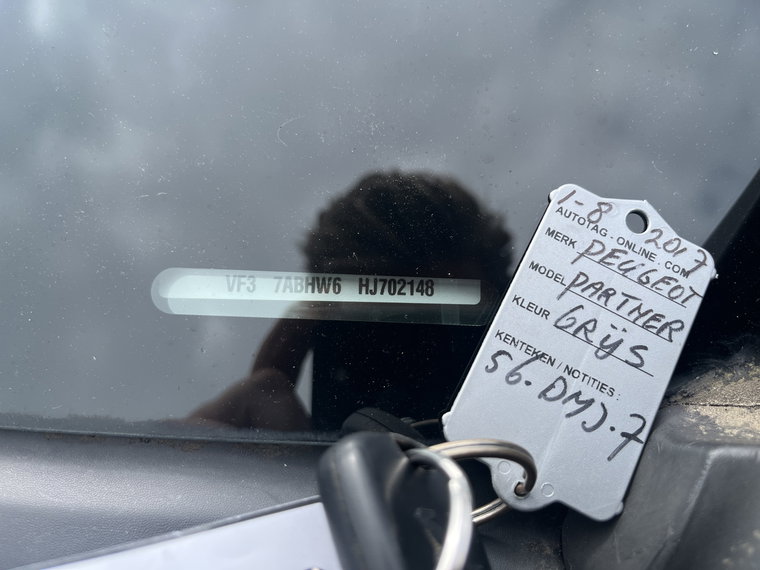 VF3 7ABHW6 HJ702148
1-8 2017
AUTOTAG-ONLINE.COM
MERK PEUGEOT
MODEL PARTNER
KLEUR GRIJS
KENTEKEN / NOTITIES :
56.DMJ.7